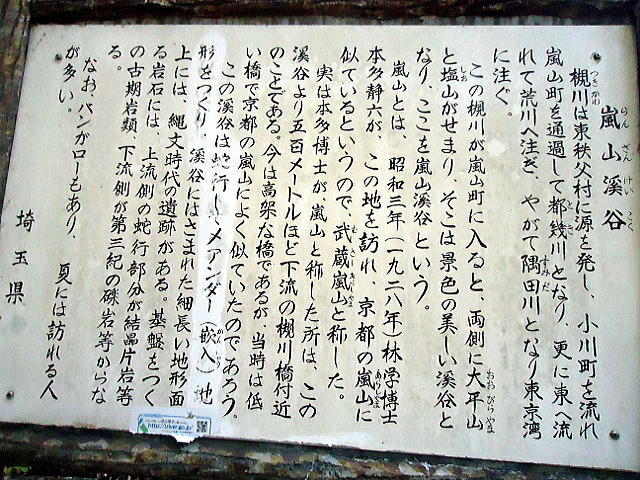 嵐山溪谷
らんざんけいこく
槻川は東秩父村に源を発し、小川町を流れ
つきかわ
嵐山町を通過して都幾川となり、更に東へ流
とき
れて荒川へ注ぎ、やがて隅田川となり東京湾
すみだ
に注ぐ。
この槻川が嵐山町に入ると、両側に大平山
おおびらやま
と塩山がせまり、そこは景色の美しい溪谷と
しお
なり、ここを嵐山溪谷という。
嵐山とは、昭和三年(一九二八年)林学博士
本多静六が、この地を訪れ、京都の嵐山に
あらしやま
似ているというので、武蔵嵐山と称した。
むさしあらしやま
実は本多博士が、嵐山と称した所は、この
溪谷より五百メートルほど下流の槻川橋付近
のことである。今は高架な橋であるが、当時は低
い橋で京都の嵐山によく似ていたのであろう。
この溪谷は蛇行し、メアンダー(嵌入)地
かんにゅう
形をつくり、溪谷にはさまれた細長い地形面
上には、縄文時代の遺跡がある。基盤をつく
る岩石には、上流側の蛇行部分が結晶片岩等
の古期岩類、下流側が第三紀の礫岩等からな
る。
なお、バンガローもあり、夏には訪れる人
が多い。
埼玉県
http://river.go.jp/